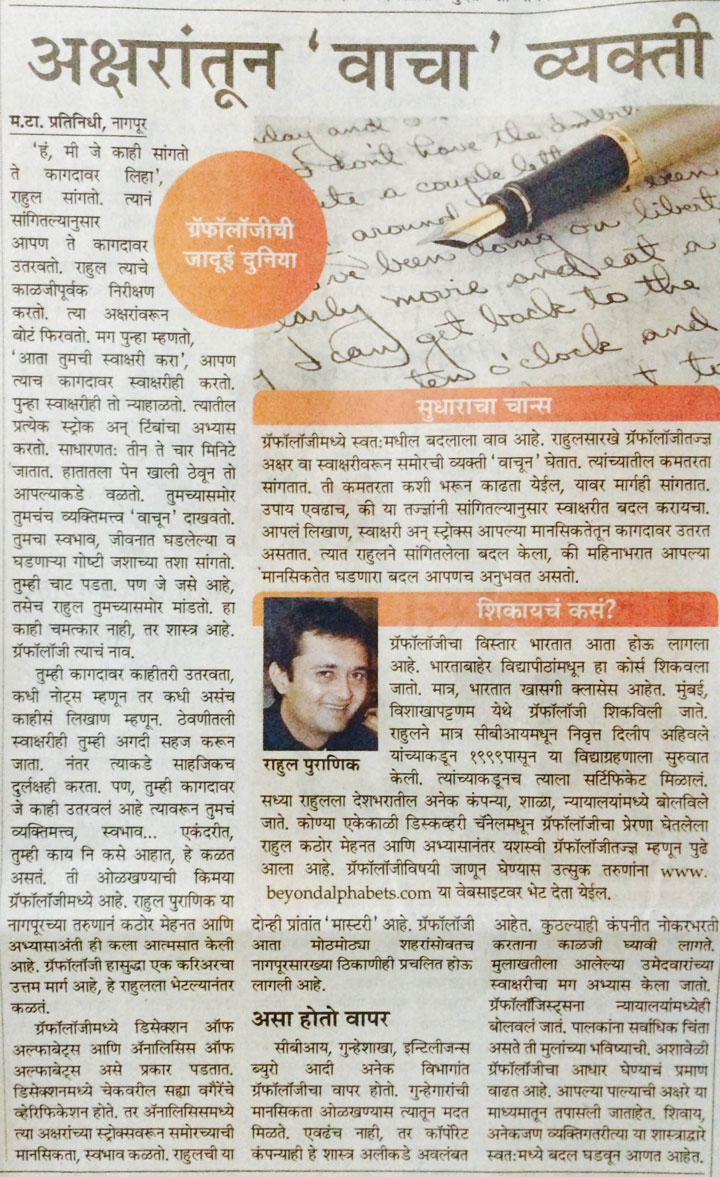 अक्षरांतून ‘वाचा’ व्यक्ती
म.टा. प्रतिनिधी, नागपूर
‘हं, मी जे काही सांगतो
ते कागदावर लिहा’,
राहुल सांगतो. त्यानं
सांगितल्यानुसार
आपण ते कागदावर
उतरवतो. राहुल त्याचे
काळजीपूर्वक निरीक्षण
करतो. त्या अक्षरांवरून
बोटं फिरवतो. मग पुन्हा म्हणतो,
‘आता तुमची स्वाक्षरी करा’, आपण
त्याच कागदावर स्वाक्षरीही करतो.
पुन्हा स्वाक्षरीही तो न्याहाळतो. त्यातील
प्रत्येक स्ट्रोक अन् टिंबांचा अभ्यास
करतो. साधारणत: तीन ते चार मिनिटे
जातात. हातातला पेन खाली ठेवून तो
आपल्याकडे वळतो. तुमच्यासमोर
तुमचंच व्यक्तिमत्त्व ‘वाचून’ दाखवतो.
तुमचा स्वभाव, जीवनात घडलेल्या व
घडणाऱ्या गोष्टी जशाच्या तशा सांगतो.
तुम्ही चाट पडता. पण जे जसे आहे,
तसेच राहुल तुमच्यासमोर मांडतो. हा
काही चमत्कार नाही, तर शास्त्र आहे.
ग्रॅफॉलॉजी त्याचं नाव.
तुम्ही कागदावर काहीतरी उतरवता,
कधी नोट्स म्हणून तर कधी असंच
काहीसं लिखाण म्हणून. ठेवणीतली
स्वाक्षरीही तुम्ही अगदी सहज करून
जाता. नंतर त्याकडे साहजिकच
दुर्लक्षही करता. पण, तुम्ही कागदावर
जे काही उतरवलं आहे त्यावरून तुमचं
व्यक्तिमत्त्व, स्वभाव... एकंदरीत,
तुम्ही काय नि कसे आहात, हे कळत
असतं. ती ओळखण्याची किमया
ग्रॅफॉलॉजीमध्ये आहे. राहुल पुराणिक या
नागपूरच्या तरुणानं कठोर मेहनत आणि
अभ्यासाअंती ही कला आत्मसात केली
आहे. ग्रॅफॉलॉजी हासुद्धा एक करिअरचा
उत्तम मार्ग आहे, हे राहुलला भेटल्यानंतर
कळतं.
ग्रॅफॉलॉजीमध्ये डिसेक्शन ऑफ
अल्फाबेट्स आणि अ‍ॅनालिसिस ऑफ
अल्फाबेट्स असे प्रकार पडतात.
डिसेक्शनमध्ये चेकवरील सह्या वगैरेंचे
व्हेरिफिकेशन होते. तर अ‍ॅनालिसिसमध्ये
त्या अक्षरांच्या स्ट्रोक्सवरून समोरच्याची
मानसिकता, स्वभाव कळतो. राहुलची या
ग्रॅफॉलॉजीची
जादूई दुनिया
don't have the
a couple left
around
been doing on
early movie and eat a
I can get back to the
ten o'clock and
सुधाराचा चान्स
ग्रॅफॉलॉजीमध्ये स्वत:मधील बदलाला वाव आहे. राहुलसारखे ग्रॅफॉलॉजीतज्ज्ञ
अक्षर वा स्वाक्षरीवरून समोरची व्यक्ती ‘वाचून’ घेतात. त्यांच्यातील कमतरता
सांगतात. ती कमतरता कशी भरून काढता येईल, यावर मार्गही सांगतात.
उपाय एवढाच, की या तज्ज्ञांनी सांगितल्यानुसार स्वाक्षरीत बदल करायचा.
आपलं लिखाण, स्वाक्षरी अन् स्ट्रोक्स आपल्या मानसिकतेतून कागदावर उतरत
असतात. त्यात राहुलने सांगितलेला बदल केला, की महिनाभरात आपल्या
मानसिकतेत घडणारा बदल आपणच अनुभवत असतो.
शिकायचं कसं?
ग्रॅफॉलॉजीचा विस्तार भारतात आता होऊ लागला
आहे. भारताबाहेर विद्यापीठांमधून हा कोर्स शिकवला
जातो. मात्र, भारतात खासगी क्लासेस आहेत. मुंबई,
विशाखापट्टणम येथे ग्रॅफॉलॉजी शिकविली जाते.
राहुलने मात्र सीबीआयमधून निवृत्त दिलीप अहिवले
यांच्याकडून १९९९पासून या विद्याग्रहणाला सुरुवात
केली. त्यांच्याकडूनच त्याला सर्टिफिकेट मिळालं.
राहुल पुराणिक
सध्या राहुलला देशभरातील अनेक कंपन्या, शाळा, न्यायालयांमध्ये बोलविले
जाते. कोण्या एकेकाळी डिस्कव्हरी चॅनेलमधून ग्रॅफॉलॉजीचा प्रेरणा घेतलेला
राहुल कठोर मेहनत आणि अभ्यासानंतर यशस्वी ग्रॅफॉलॉजीतज्ज्ञ म्हणून पुढे
आला आहे. ग्रॅफॉलॉजीविषयी जाणून घेण्यास उत्सुक तरुणांना www.
beyondalphabets.com या वेबसाइटवर भेट देता येईल.
दोन्ही प्रांतांत ‘मास्टरी’ आहे. ग्रॅफॉलॉजी
आता मोठमोठ्या शहरांसोबतच
नागपूरसारख्या ठिकाणीही प्रचलित होऊ
लागली आहे.
असा होतो वापर
सीबीआय, गुन्हेशाखा, इन्टिलीजन्स
ब्युरो आदी अनेक विभागांत
ग्रॅफॉलॉजीचा वापर होतो. गुन्हेगारांची
मानसिकता ओळखण्यास त्यातून मदत
मिळते. एवढंच नाही, तर कॉर्पोरेट
कंपन्याही हे शास्त्र अलीकडे अवलंबत
आहेत. कुठल्याही कंपनीत नोकरभरती
करताना काळजी घ्यावी लागते.
मुलाखतीला आलेल्या उमेदवारांच्या
स्वाक्षरीचा मग अभ्यास केला जातो.
ग्रॅफॉलॉजिस्ट्सना न्यायालयांमध्येही
बोलवलं जातं. पालकांना सर्वाधिक चिंता
असते ती मुलांच्या भविष्याची. अशावेळी
ग्रॅफॉलॉजीचा आधार घेण्याचं प्रमाण
वाढत आहे. आपल्या पाल्याची अक्षरे या
माध्यमातून तपासली जाताहेत. शिवाय,
अनेकजण व्यक्तिगतरीत्या या शास्त्राद्वारे
स्वत:मध्ये बदल घडवून आणत आहेत.